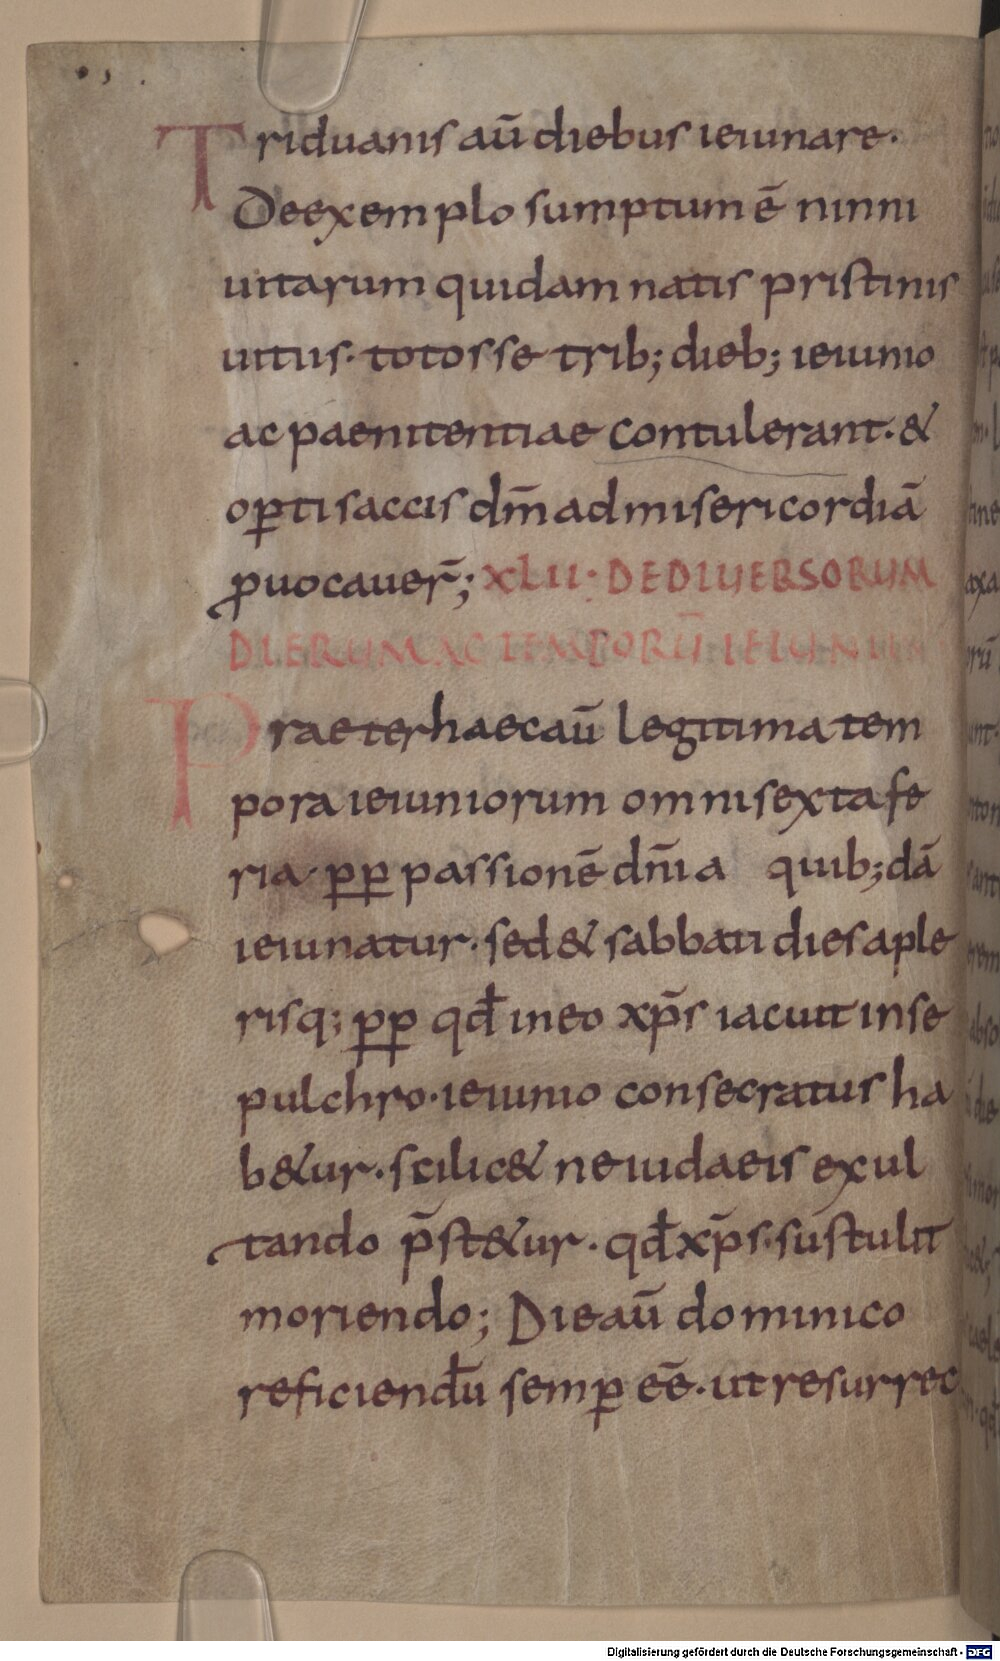 Triduanis aū diebus ieiunare.
Deexemplo sumptum ē ninni
uitarum quidam natis pristinis
uitiis. totos se trib; dieb; ieiunio
ac paenitentiae contulerant. &
op̱ti saccis dm̄ ad misericordiā
ꝓuocauer̄; XLII. DE DIUERSORUM
DIERUM AC TEMPORŪ IEIUNIIS
Praeter haec aū legitima tem
pora ieiuniorum omni sexta fe
ria. ꝓꝑ passionē dn̄i a quib;dā
ieiunatur. sed & sabbati dies a ple
risq; ꝓꝑ qđ in eo xp̄s iacuit in se
pulchro. ieiunio consecratus ha
b&ur. scilic& ne iudaeis exul
tando p̄st&ur. qđ xp̄s. sustulit
moriendo; Die aū dominico
reficiendū semꝑ eē. ut resurrec
Digitalisierung gefördert durch die Deutsche Forschungsgemeinschaft - DFG